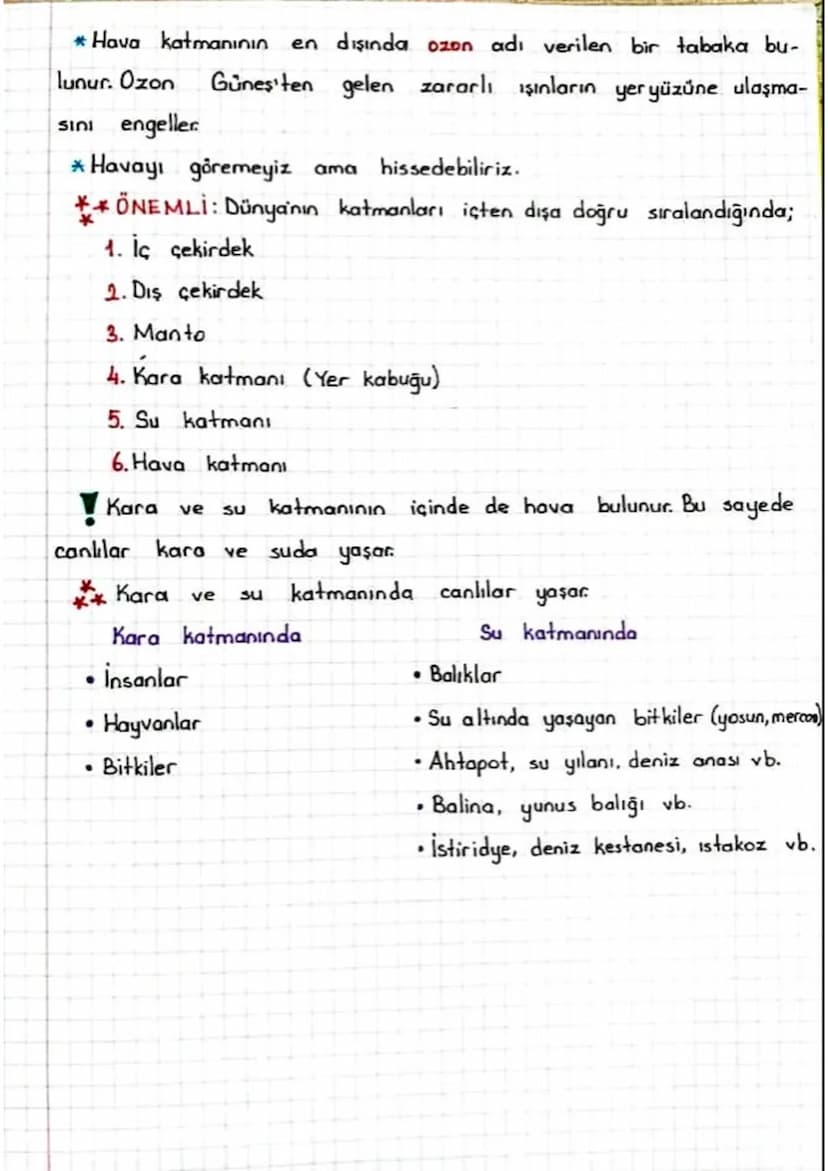 * Hava katmanının en dışında ozon adı verilen bir tabaka bu-
lunur. Ozon Güneş'ten gelen zararlı ışınların yeryüzüne ulaşma-
sını engeller.
* Havayı göremeyiz ama hissedebiliriz.
*** ÖNEMLİ: Dünya'nın katmanları içten dışa doğru sıralandığında;
1. İç çekirdek
2. Dış çekirdek
3. Manto
4. Kara katmanı (Yer kabuğu)
5. Su katmanı
6. Hava katmanı
! Kara ve su katmanının içinde de hava bulunur. Bu sayede
canlılar kara ve suda yaşar.
*** Kara ve su katmanında canlılar yaşar.
Kara katmanında Su katmanında
• İnsanlar • Balıklar
• Hayvanlar • Su altında yaşayan bitkiler (yosun, mercan)
• Bitkiler • Ahtapot, su yılanı, deniz anası vb.
• Balina, yunus balığı vb.
• İstiridye, deniz kestanesi, ıstakoz vb.